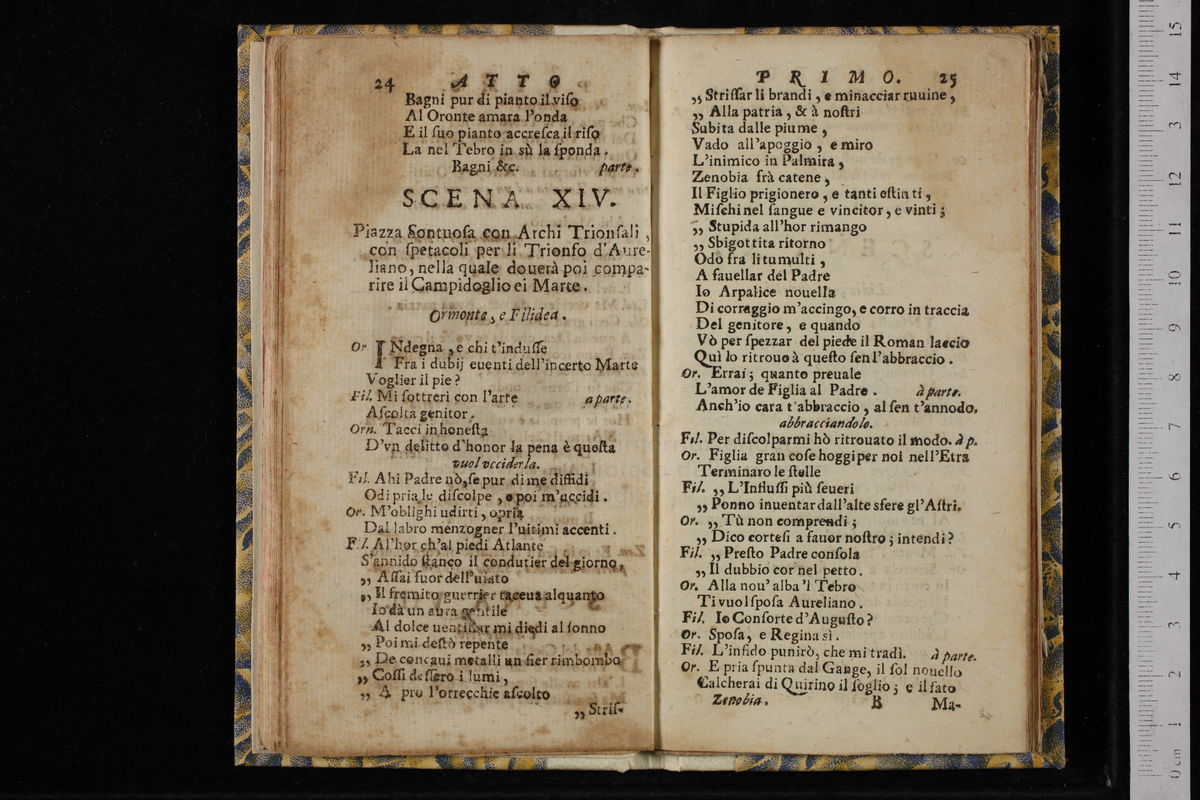 24 ATTO
Bagni pur di pianto il viſo
Al Oronte amara l'onda
E il ſuo pianto accreſca il riſo
La nel Tebro in sù la ſponda.
Bagni &c. parte.
SCENA XIV.
Piazza Sontuoſa con Archi Trionfali,
con ſpetacoli per li Trionfo d'Aure-
liano, nella quale douerà poi compa-
rire il Campidoglio ei Marte.
Ormonte, e Filidea.
Or INdegna, e chi t'induſſe
Fra i dubij euenti dell'incerto Marte
Voglier il pie?
Fil. Mi ſottreri con l'arte a parte.
Aſcolta genitor.
Orn. Tacci inhoneſta
D'vn delitto d'honor la pena è queſta
vuol vcciderla.
Fil. Ahi Padre nò, ſe pur di me diffidi
Odi pria le diſcolpe, e poi m'uccidi.
Or. M'oblighi udirti, opria
Dal labro menzogner l'ultimi accenti.
Fil. Al'hor ch'al piedi Atlante
S'annido ſtanco il condutier del giorno,
„ Aſſai fuor dell'uſato
„ Il fremito guerrier taceua alquanto
Io dà un aura gentile
Al dolce uentillar mi diedi al ſonno
„ Poi mi deſtò repente
„ De concaui metalli un fier rimbombo
„ Coſſi deſſero i lumi,
„ A pro l'orrecchie aſcolto
„ Striſ-
PRIMO. 25
„ Striſſar li brandi, e minacciar ruuine,
„ Alla patria, & à noſtri
Subita dalle piume,
Vado all'apoggio, e miro
L'inimico in Palmira,
Zenobia frà catene,
Il Figlio prigionero, e tanti eſtinti,
Miſchi nel ſangue e vincitor, e vinti;
„ Stupida all'hor rimango
„ Sbigottita ritorno
Odo fra li tumulti,
A fauellar del Padre
Io Arpalice nouella
Di corraggio m'accingo, e corro in traccia
Del genitore, e quando
Vò per ſpezzar del piede il Roman laccio
Quì lo ritrouo à queſto ſen l'abbraccio.
Or. Errai; quanto preuale
L'amor de Figlia al Padre. à parte.
Anch'io cara t'abbraccio, al ſen t'annodo.
abbracciandolo.
Fil. Per diſcolparmi hò ritrouato il modo. à p.
Or. Figlia gran coſe hoggi per noi nell'Etra
Terminaro le ſtelle
Fil. „ L'Influſſi più ſeueri
„ Ponno inuentar dall'alte sfere gl'Aſtri.
Or. „ Tù non comprendi;
„ Dico corteſi a fauor noſtro; intendi?
Fil. „ Preſto Padre conſola
„ Il dubbio cor nel petto.
Or. Alla nou' alba 'l Tebro
Ti vuol ſpoſa Aureliano.
Fil. Io Conſorte d'Auguſto?
Or. Spoſa, e Regina sì.
Fil. L'infido punirò, che mi tradì. à parte.
Or. E pria ſpunta dal Gange, il ſol nouello
Calcherai di Quirino il ſoglio; e il fato
Zenobia. B Ma-
15
14
13
12
11
10
9
8
7
6
5
4
3
2
1
0 cm